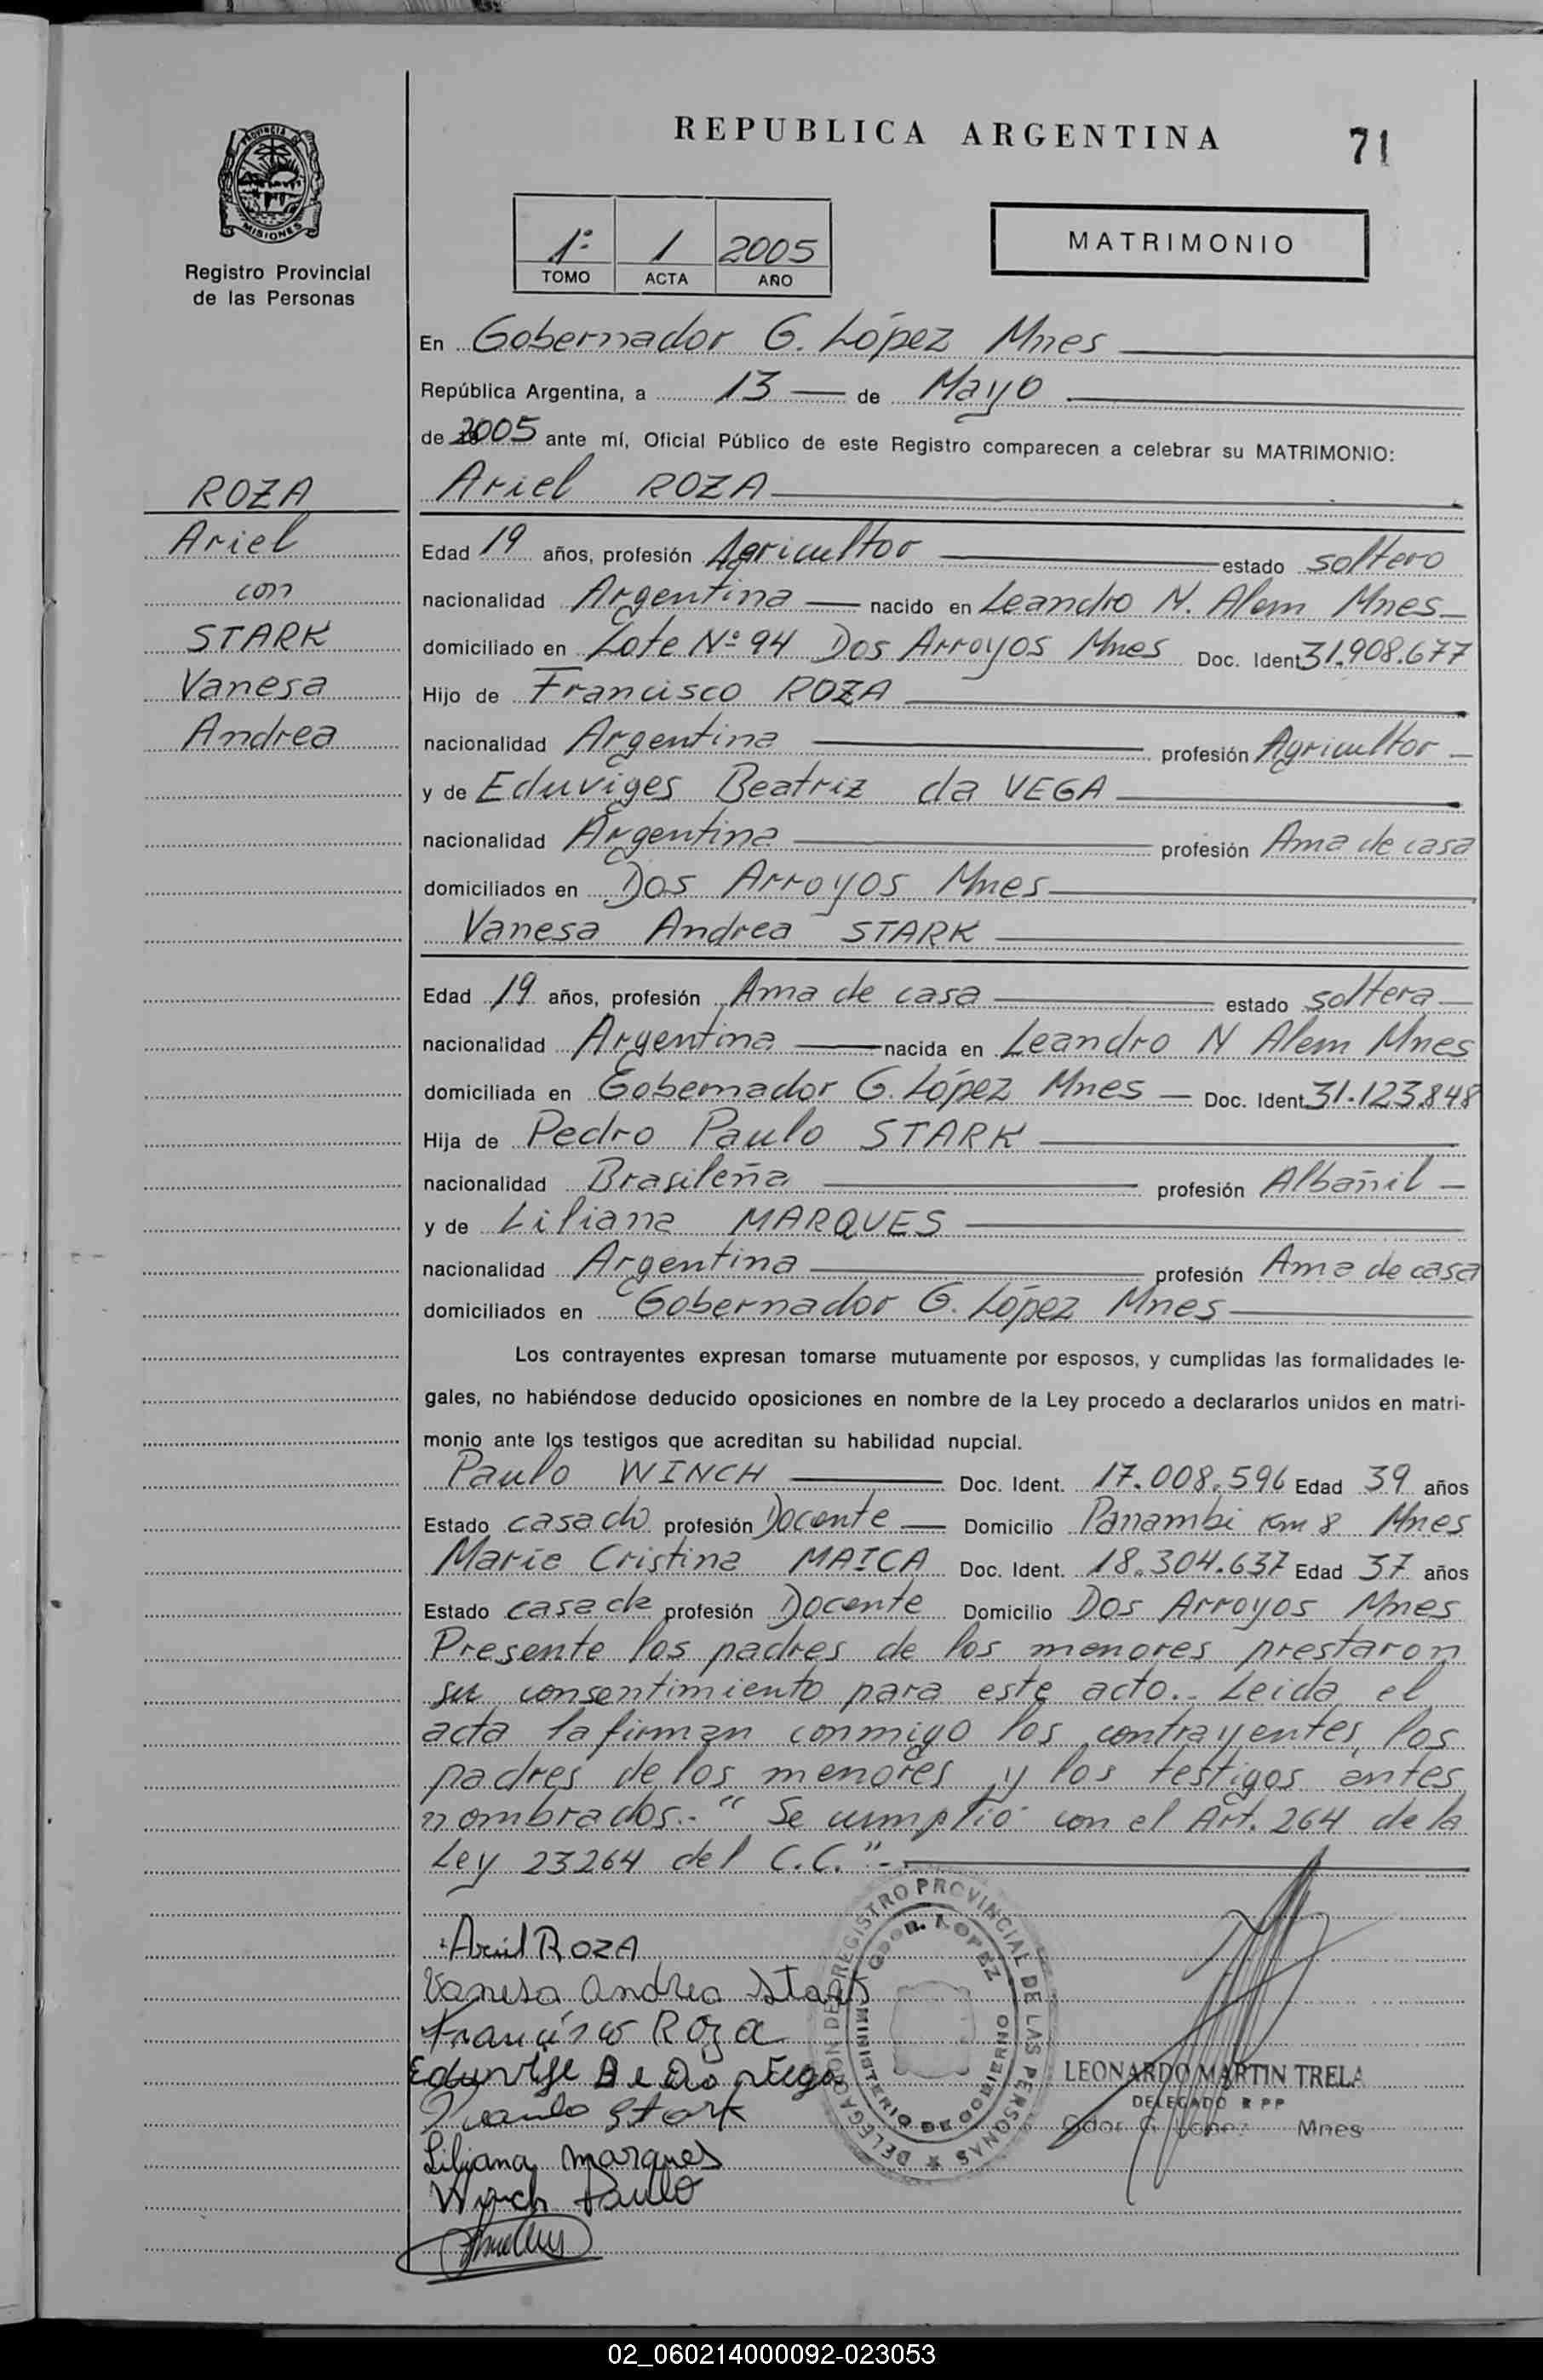 REPUBLICA ARGENTINA
71
PROVINCIA DE
MISIONES
Registro Provincial
de las Personas
1º 1 2005
TOMO ACTA AÑO
MATRIMONIO
En Gobernador G. López Mnes
República Argentina, a 13 de Mayo
de 2005 ante mí, Oficial Público de este Registro comparecen a celebrar su MATRIMONIO:
ROZA
Ariel
con
STARK
Vanesa
Andrea
Ariel ROZA
Edad 19 años, profesión Agricultor estado soltero
nacionalidad Argentina nacido en Leandro N. Alem Mnes
domiciliado en Lote Nº 94 Dos Arroyos Mnes Doc. Ident 31.908.677
Hijo de Francisco ROZA
nacionalidad Argentina profesión Agricultor
y de Eduviges Beatriz da VEGA
nacionalidad Argentina profesión Ama de casa
domiciliados en Dos Arroyos Mnes
Vanesa Andrea STARK
Edad 19 años, profesión Ama de casa estado soltera
nacionalidad Argentina nacida en Leandro N Alem Mnes
domiciliada en Gobernador G. López Mnes Doc. Ident. 31.123.848
Hija de Pedro Paulo STARK
nacionalidad Brasileña profesión Albañil
y de Liliana MARQUES
nacionalidad Argentina profesión Ama de casa
domiciliados en Gobernador G. López Mnes
Los contrayentes expresan tomarse mutuamente por esposos, y cumplidas las formalidades le-
gales, no habiéndose deducido oposiciones en nombre de la Ley procedo a declararlos unidos en matri-
monio ante los testigos que acreditan su habilidad nupcial.
Paulo WINCH Doc. Ident. 17.008.596 Edad 39 años
Estado casado profesión Docente Domicilio Panambi Km 8 Mnes
Maria Cristina MAICA Doc. Ident. 18.304.637 Edad 37 años
Estado casada profesión Docente Domicilio Dos Arroyos Mnes
Presente los padres de los menores prestaron
su consentimiento para este acto.- Leida el
acta la firman conmigo los contrayentes, los
padres de los menores y los testigos antes
nombrados.- " Se cumplió con el Art. 264 de la
Ley 23264 del C.C."-
Ariel ROZA
Vanesa Andrea Stark
Francisco Roza
Eduvige B da Vega
Paulo Stark
Liliana Marques
Winch Paulo
DELEGACION DEL REGISTRO PROVINCIAL DE LAS PERSONAS
GDOR. LOPEZ
MINISTERIO DE GOBIERNO
LEONARDO MARTIN TRELA
DELEGADO R P P
Gdor G López Mnes
02_060214000092-023053